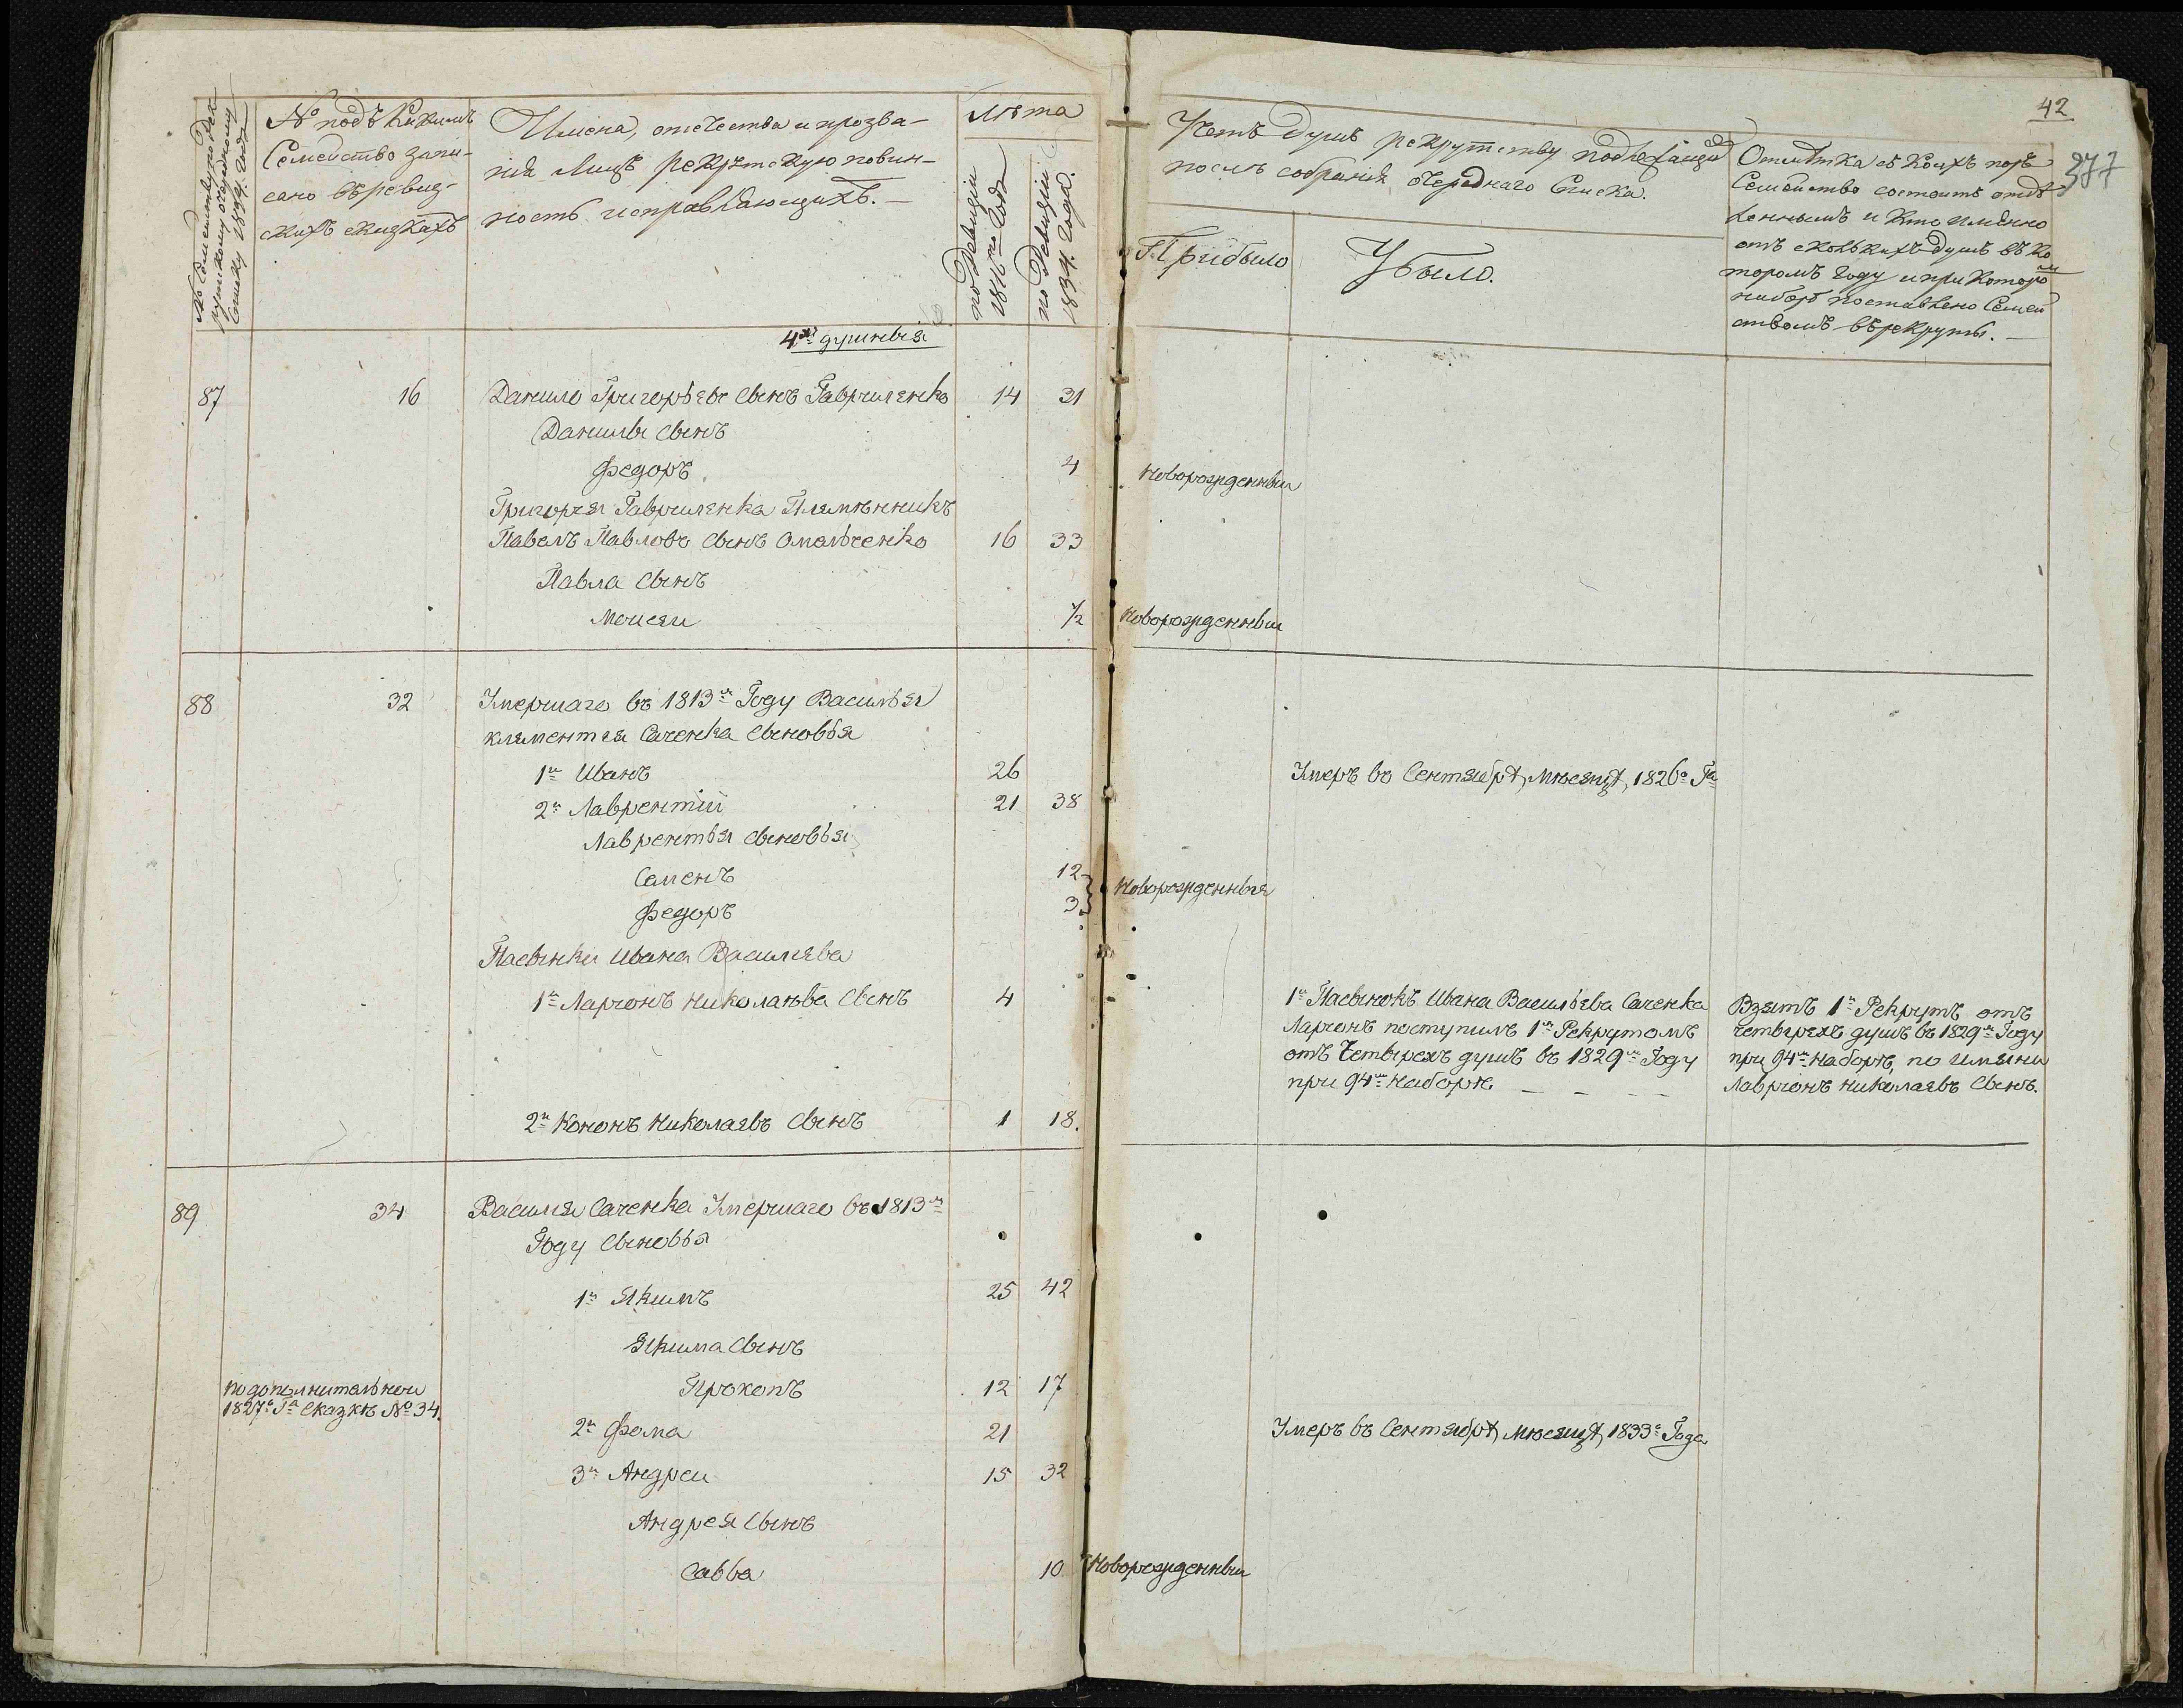 42
377
№ Семейству по рек-
рутскому очередному
Списку 1834. года
№ подъ какимъ
Семейство запи-
сано въ ревиз-
скихъ сказкахъ
Имена, отечества и прозва-
нія лицъ рекрутскую повин-
ность исправляющихъ.—
Лѣта
по Ревизіи
1816го года
по Ревизіи
1834. года.
Учетъ душъ рекрутству подлежащих
послѣ собранія очереднаго Списка.
Прибыло
Убыло.
Отмѣтка въ коихъ
Семейство состоитъ отдѣ-
леннымъ и кто именно
отъ сколькихъ душъ въ ко
торомъ году и при которомъ
наборѣ поставлено Семей
ствомъ въ рекруты.—
4хъ душныя
87 16 Данило Григорьевъ сынъ Гавриленко 14 31
Данилы сынъ
Федоръ 4 Новорожденный
Григорья Гавриленка Племѣнникъ
Павелъ Павловъ сынъ Омельченко 16 33
Павла сынъ
Моисей 1/2 Новорожденный
88 32 Умершаго въ 1813м Году Василья
Клементья Саченка сыновья
1й Иванъ 26 Умеръ въ Сентябрѣ мѣсяцѣ 1826о Га
2й Лаврентій 21 38
Лаврентья сыновья
Семенъ 12
Новорожденныя
Федоръ 3
Пасынки Ивана Васильева
1й Ларіонъ Николаѣвъ Сынъ 4
1й Пасынокъ Ивана Васильева Саченка
Ларіонъ поступилъ 1м Рекрутомъ
отъ Четырехъ душъ въ 1829м Году
при 94м Наборѣ — — —
Взятъ 1й Рекрутъ отъ
четырехъ душъ въ 1829м Году
при 94м Наборѣ, по имяни
Лавріонъ Николаевъ Сынъ.
2й Кононъ Николаевъ Сынъ 1 18.
89 34 Василья Саченка Умершаго въ 1813м
Году Сыновья
1й Якимъ 25 42
Якима Сынъ
по дополнительной
1827о Га Сказкѣ № 34.
Прокопъ 12 17
2й Фома 21 Умеръ въ Сентябрѣ мѣсяцѣ 1833о Года
3й Андрей 15 32
Андрея Сынъ
Савва 10 Новорожденный